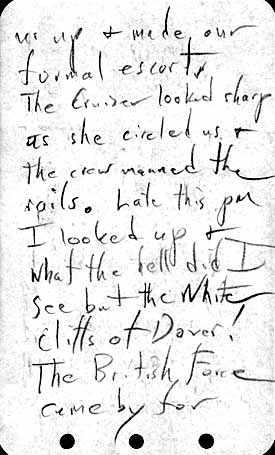 us up & made our
formal escort.
The Cruiser looked sharp
as she circled us, &
the crew manned the
rails. Late this pm
I looked up &
what the hell did I
see but the White
Cliffs of Dover!
The British Force
came by for